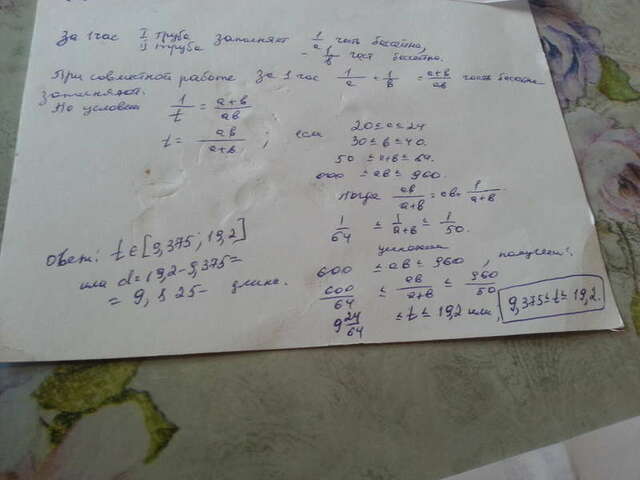 За 1 час I труба заполняет 1/a часть бассейна,
II труба - 1/в част бассейна.
При совместной работе за 1 час 1/a + 1/в = a+в/aв часть бассейна
заполняют.
По условию 1/t = a+в/aв
t = aв/a+в ; если 20 ≤ a ≤ 24
30 ≤ в ≤ 40.
50 ≤ a+в ≤ 64.
≤ aв ≤ 960.
Тогда aв/a+в = aв · 1/a+в
1/64 ≤ 1/a+в ≤ 1/50.
умножаем
600 ≤ aв ≤ 960, получаем:
600/64 ≤ aв/a+в ≤ 960/50
9 24/64 ≤ t ≤ 19,2 или, 9,375 ≤ t ≤ 19,2.
Ответ: t ∈ [9,375; 19,2]
или d = 19,2 - 9,375 =
= 9,825 - длине.